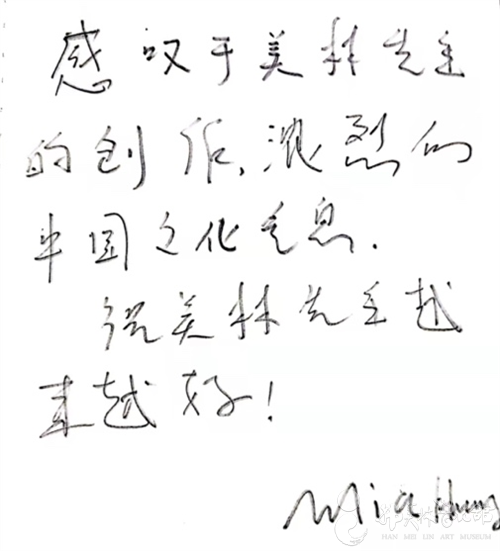 感叹于美林先生
的创作,浓烈的
中国文化气息.
祝美林先生越
来越好!
Mia Hung
韩美林艺术馆
HAN MEI LIN ART MUSEUM